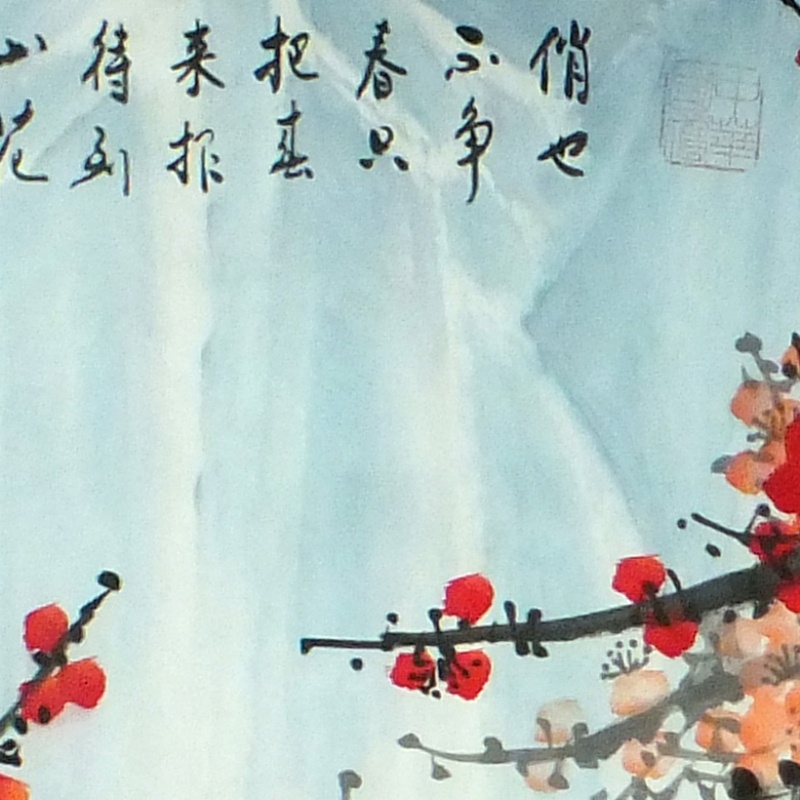 俏也
不争
春只
把春
来报
待到
山花